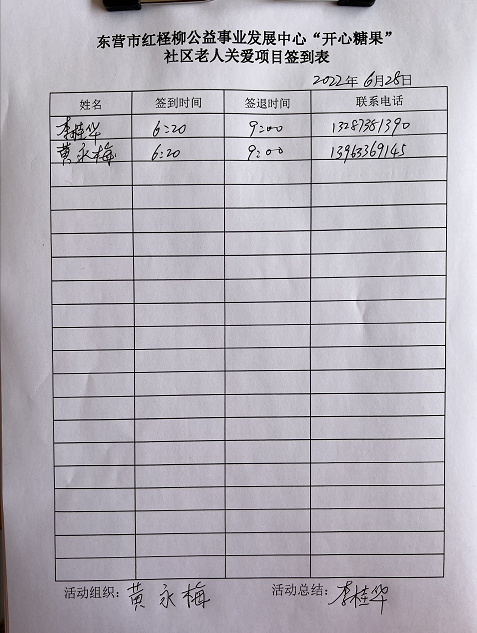 东营市红柽柳公益事业发展中心“开心糖果”
社区老人关爱项目签到表
2022年 6月28日
姓名 签到时间 签退时间 联系电话
李桂华 6:20 9:00 13287381390
黄永梅 6:20 9:00 13963369145
活动组织：黄永梅 活动总结：李桂华